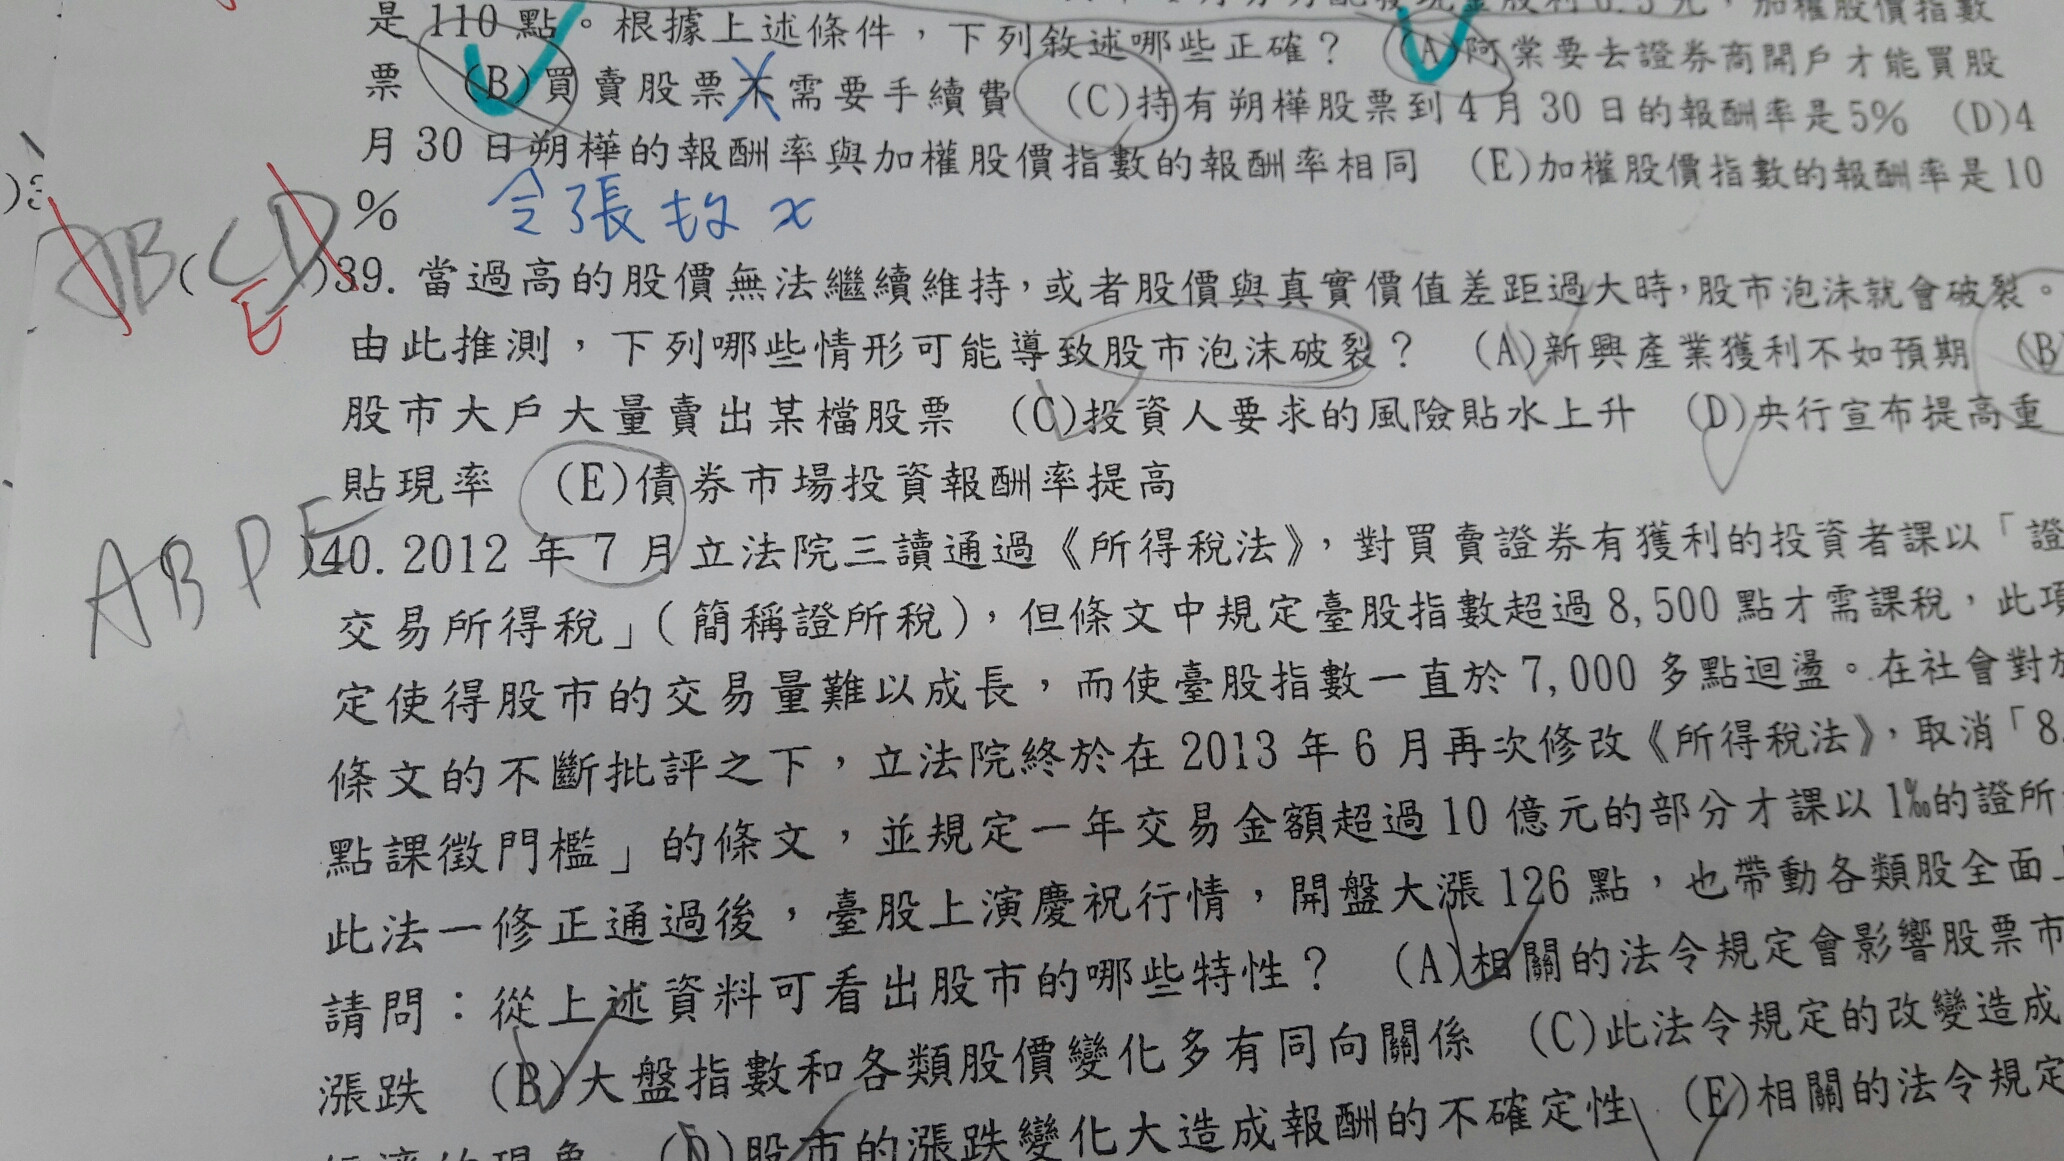 是110點。根據上述條件，下列敘述哪些正確？ (A)阿棠要去證券商開戶才能買股
票 (B)買賣股票不需要手續費 (C)持有朔樺股票到4月30日的報酬率是5% (D)4
月30日朔樺的報酬率與加權股價指數的報酬率相同 (E)加權股價指數的報酬率是10
%
AB(CD
E
)39.當過高的股價無法繼續維持，或者股價與真實價值差距過大時，股市泡沫就會破裂。
由此推測，下列哪些情形可能導致股市泡沫破裂？ (A)新興產業獲利不如預期 (B
股市大戶大量賣出某檔股票 (C)投資人要求的風險貼水上升 (D)央行宣布提高重
貼現率 (E)債券市場投資報酬率提高
ABDE
)40.2012年7月立法院三讀通過《所得稅法》，對買賣證券有獲利的投資者課以「證
交易所得稅」（簡稱證所稅），但條文中規定臺股指數超過8,500點才需課稅，此項
定使得股市的交易量難以成長，而使臺股指數一直於7,000多點迴盪。在社會對於
條文的不斷批評之下，立法院終於在2013年6月再次修改《所得稅法》，取消「8,
點課徵門檻」的條文，並規定一年交易金額超過10億元的部分才課以1‰的證所
此法一修正通過後，臺股上演慶祝行情，開盤大漲126點，也帶動各類股全面
請問：從上述資料可看出股市的哪些特性？ (A)相關的法令規定會影響股票市
漲跌 (B)大盤指數和各類股價變化多有同向關係 (C)此法令規定的改變造成
經濟的現象 (D)股市的漲跌變化大造成報酬的不確定性 (E)相關的法令規定